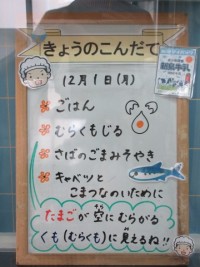 きょうのこんだて
12月1日(月)
ごはん
むらくもじる
さばのごまみそやき
キャベツと
こまつなのいために
たまごが空にむらがる
くも(むらくも)に見えるね!!